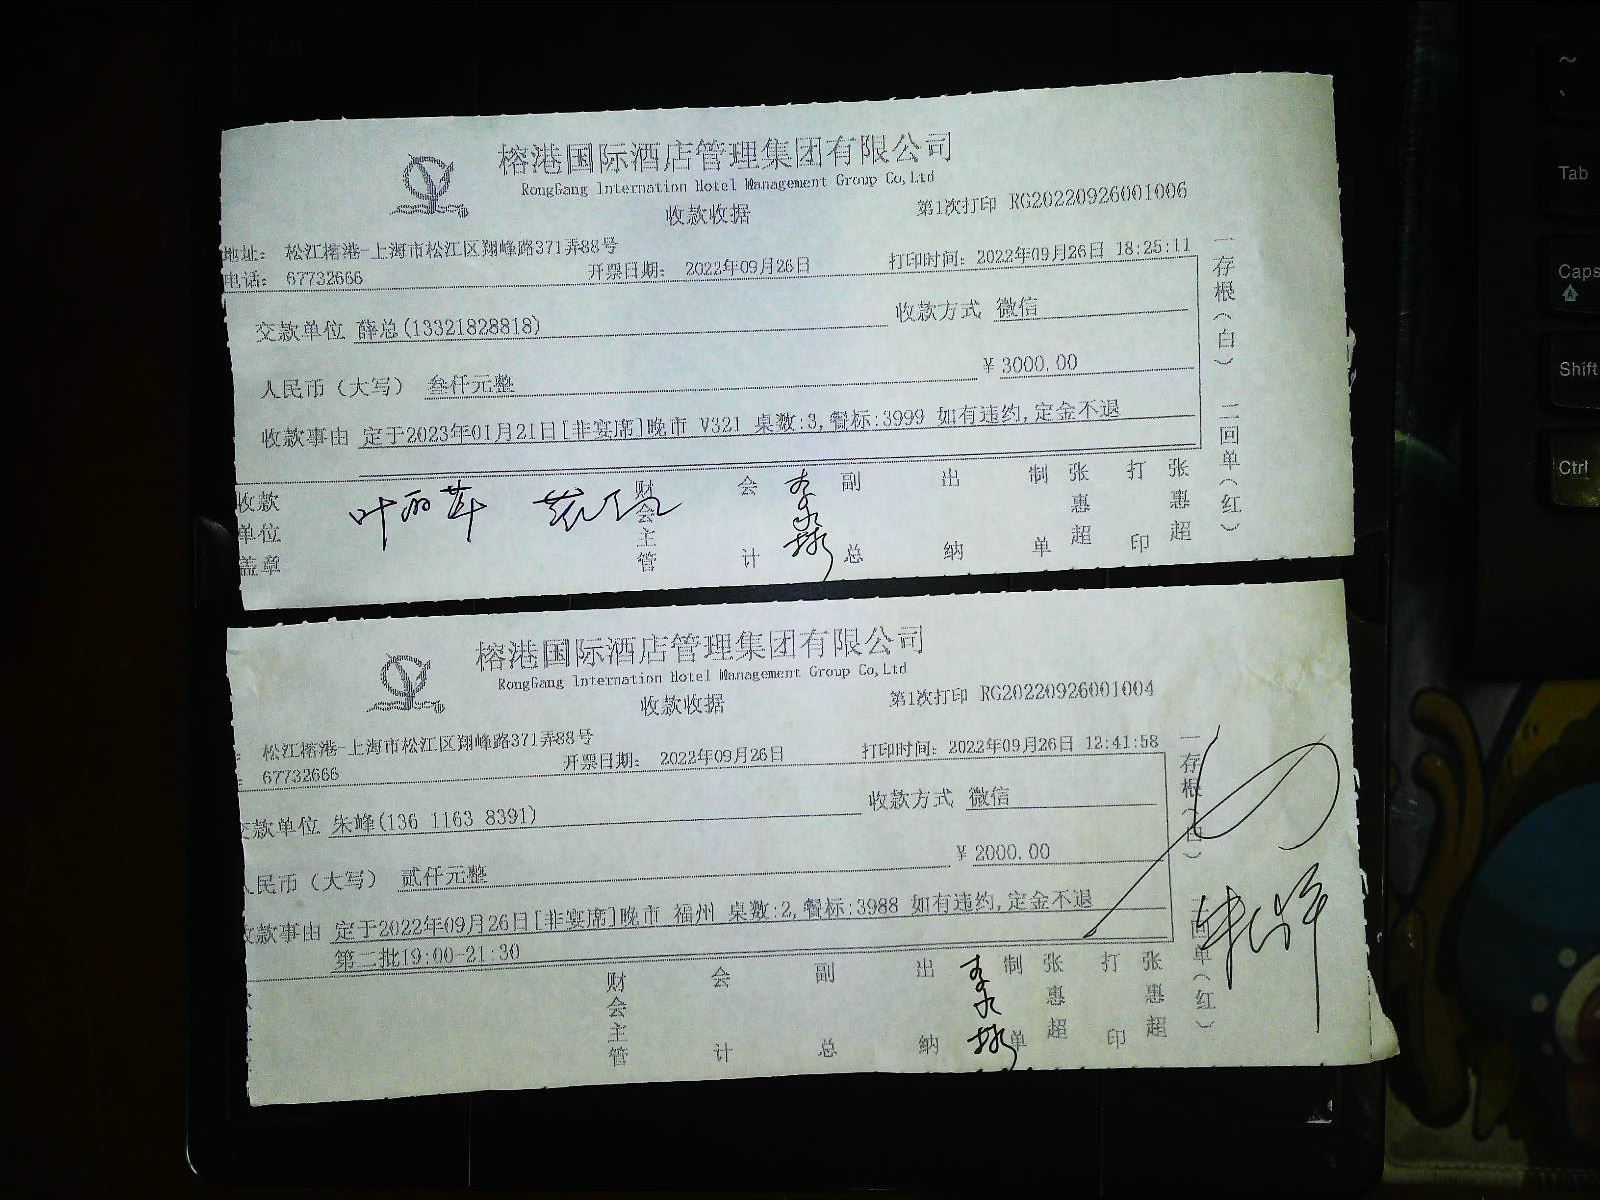 榕港国际酒店管理集团有限公司
RongGang Internation Hotel Management Group Co,Ltd
收款收据
第1次打印 RG20220926001006
地址: 松江榕港-上海市松江区翔峰路371弄88号
电话: 67732666
开票日期: 2022年09月26日
打印时间: 2022年09月26日 18:25:11
交款单位 薛总(13321828818)
收款方式 微信
人民币（大写） 叁仟元整
¥ 3000.00
收款事由 定于2023年01月21日[非宴席]晚市 V321 桌数:3,餐标:3999 如有违约,定金不退
收款单位盖章
叶丽萍
财会主管
会计
副总
出纳
制单
张惠超
打印
张惠超
一存根(白) 二回单(红)
榕港国际酒店管理集团有限公司
RongGang Internation Hotel Management Group Co,Ltd
收款收据
第1次打印 RG20220926001004
松江榕港-上海市松江区翔峰路371弄88号
67732666
开票日期: 2022年09月26日
打印时间: 2022年09月26日 12:41:58
交款单位 朱峰(136 1163 8391)
收款方式 微信
人民币（大写） 贰仟元整
¥ 2000.00
收款事由 定于2022年09月26日[非宴席]晚市 福州 桌数:2,餐标:3988 如有违约,定金不退
第二批19:00-21:30
财会主管
会计
副总
出纳
制单
张惠超
打印
张惠超
一存根(白) 二回单(红)
~
Tab
Caps
Shift
Ctrl